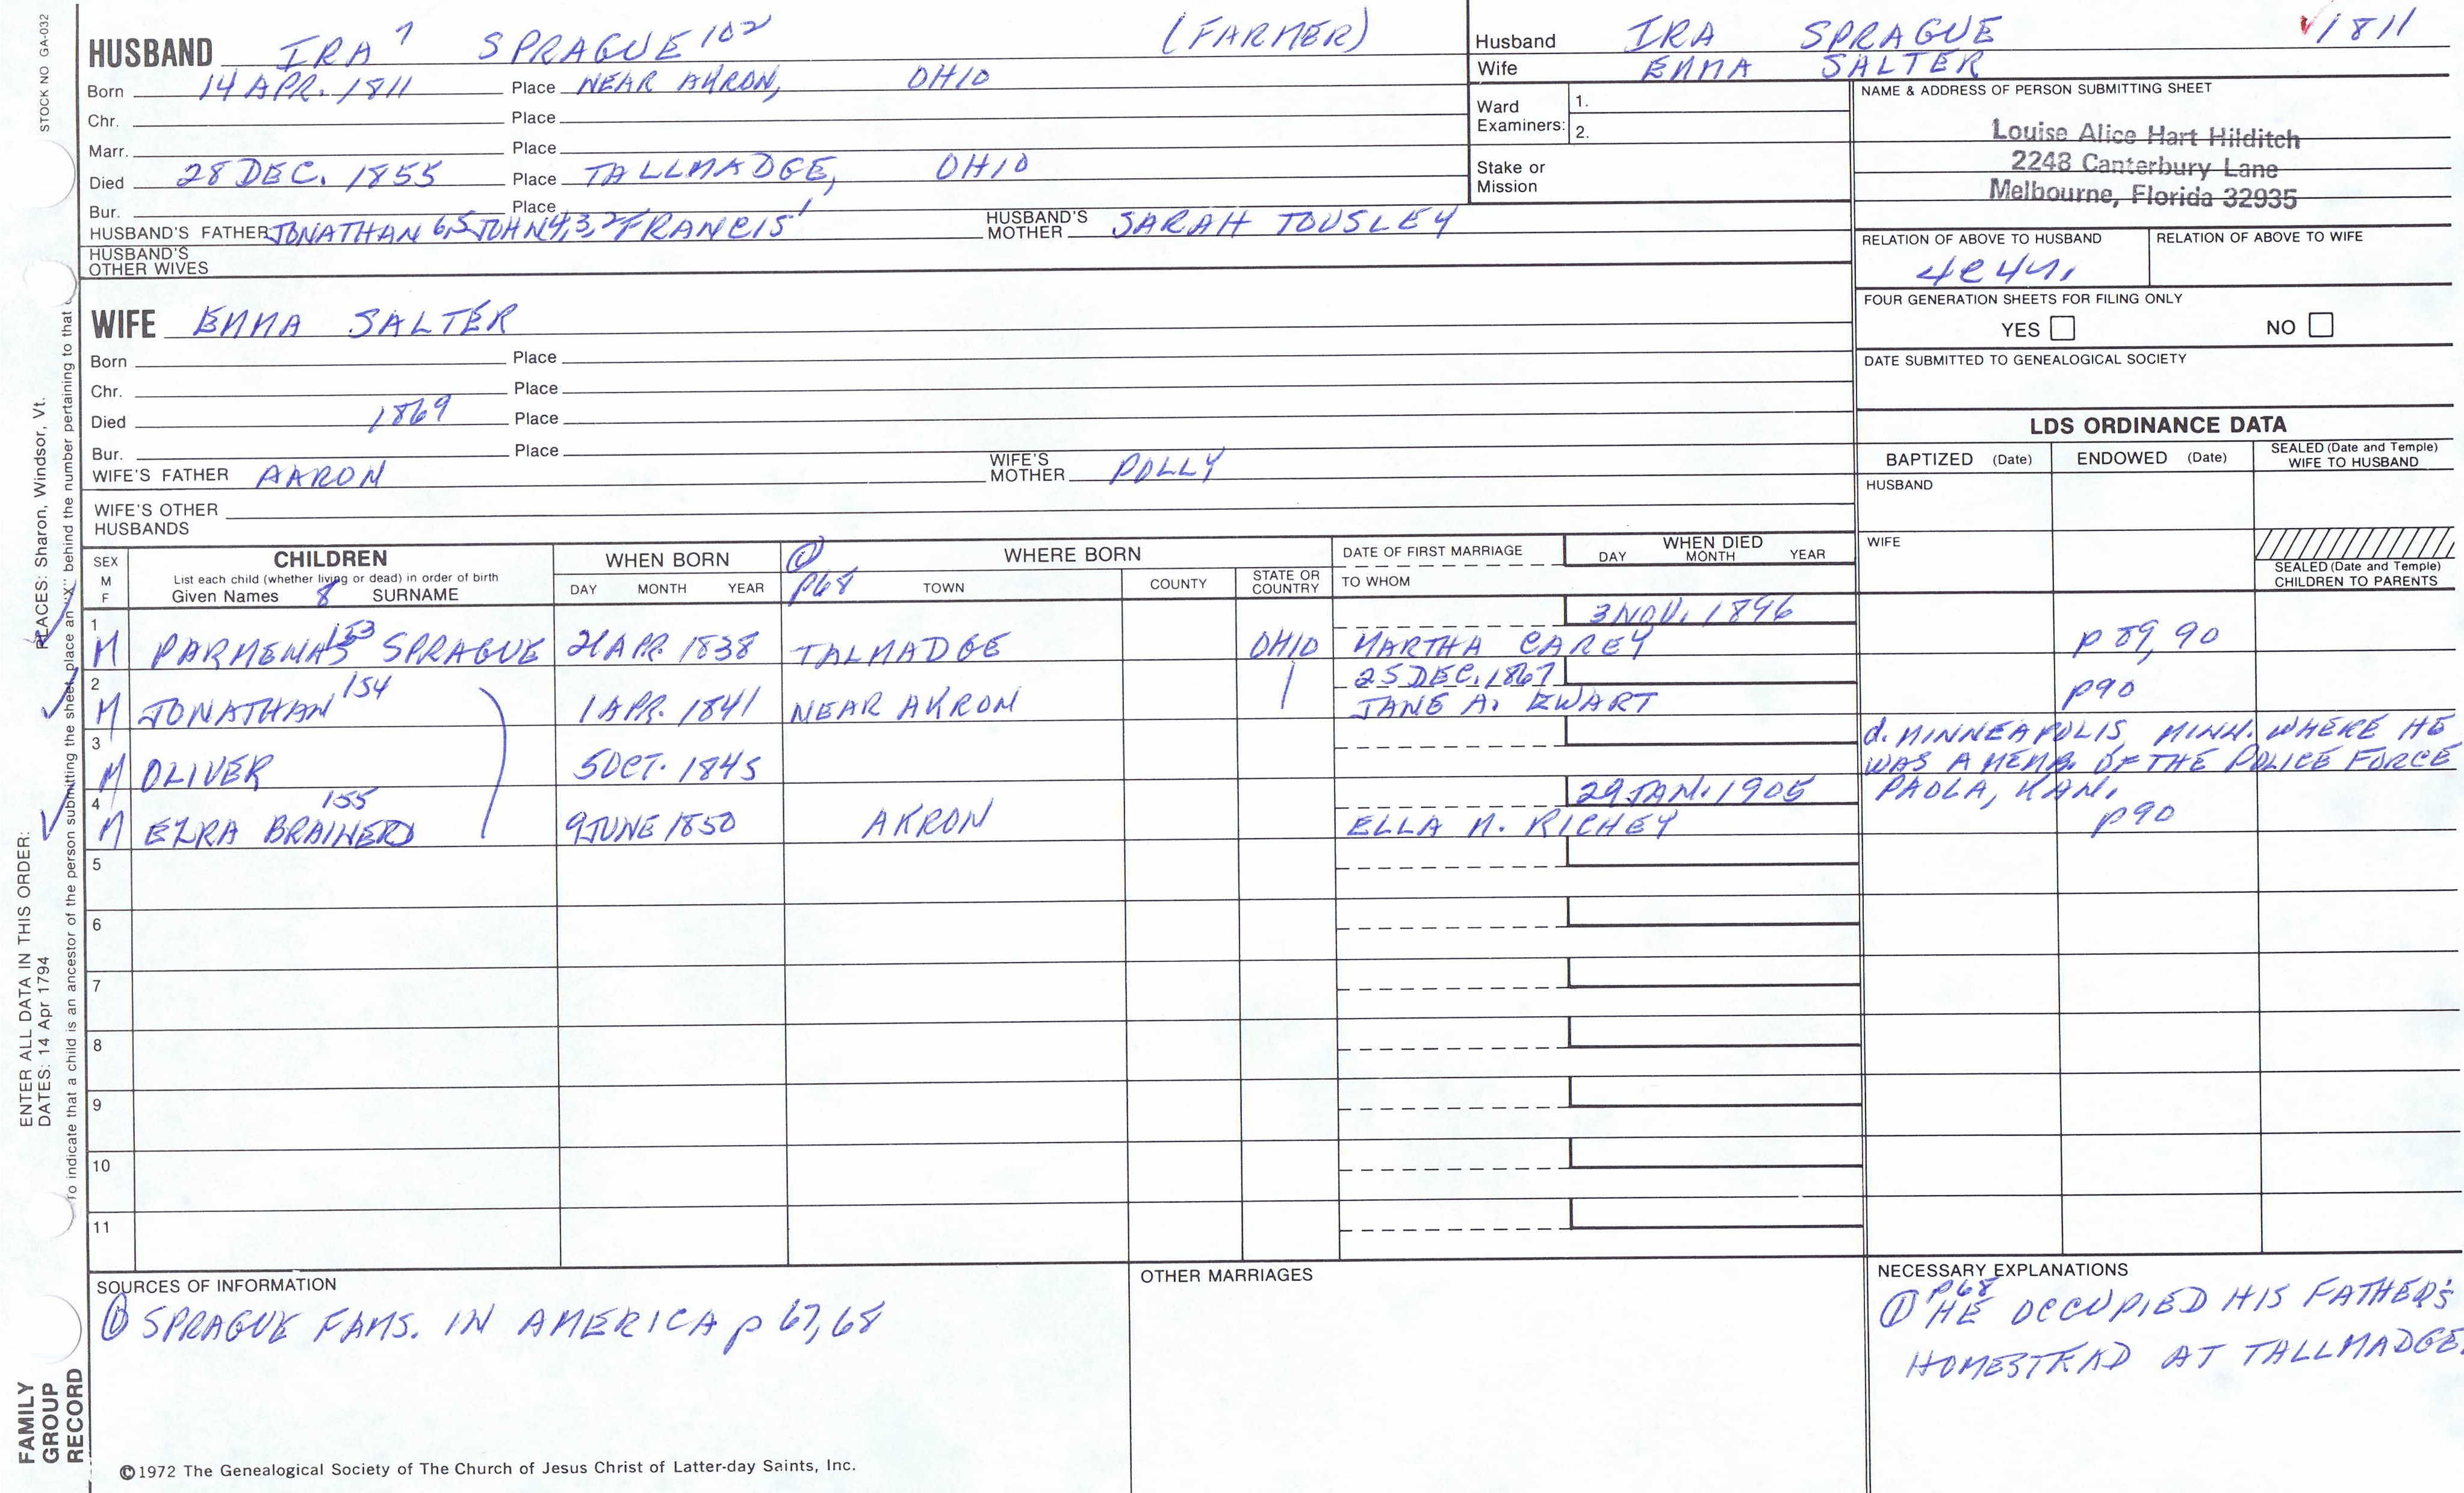 STOCK NO GA-032
HUSBAND IRA 7 SPRAGUE 102 (FARMER)
Born 14 APR. 1811 Place NEAR AKRON, OHIO
Chr. Place
Marr. Place
Died 28 DEC. 1855 Place TALLMADGE, OHIO
Bur. Place
HUSBAND'S FATHER JONATHAN 6,5 JOHN 4,3,2 FRANCIS 1 HUSBAND'S MOTHER SARAH TOUSLEY
HUSBAND'S OTHER WIVES
WIFE EMMA SALTER
Born Place
Chr. Place
Died 1869 Place
Bur. Place
WIFE'S FATHER AARON WIFE'S MOTHER POLLY
WIFE'S OTHER HUSBANDS
Husband IRA SPRAGUE ✓1811
Wife EMMA SALTER
Ward Examiners: 1.
2.
Stake or Mission
NAME & ADDRESS OF PERSON SUBMITTING SHEET
Louise Alice Hart Hilditch
2248 Canterbury Lane
Melbourne, Florida 32935
RELATION OF ABOVE TO HUSBAND RELATION OF ABOVE TO WIFE
FOUR GENERATION SHEETS FOR FILING ONLY
YES NO
DATE SUBMITTED TO GENEALOGICAL SOCIETY
LDS ORDINANCE DATA
BAPTIZED (Date) ENDOWED (Date) SEALED (Date and Temple) WIFE TO HUSBAND
HUSBAND
WIFE
SEALED (Date and Temple) CHILDREN TO PARENTS
SEX M F
CHILDREN
List each child (whether living or dead) in order of birth
Given Names 8 SURNAME
WHEN BORN
DAY MONTH YEAR
① p68
WHERE BORN
TOWN COUNTY STATE OR COUNTRY
DATE OF FIRST MARRIAGE
TO WHOM
WHEN DIED
DAY MONTH YEAR
3 NOV. 1896
1 M PARMENAS 153 SPRAGUE 21 APR. 1838 TALMADGE OHIO MARTHA CAREY p 89, 90
25 DEC. 1867
2 M JONATHAN 154 1 APR. 1841 NEAR AKRON JANE A. EWART p90
3 M OLIVER 5 OCT. 1845 d. MINNEAPOLIS, MINN. WHERE HE
WAS A MEMB. OF THE POLICE FORCE
29 JAN. 1905 PAOLA, KAN.
4 M EZRA BRAINERD 155 9 JUNE 1850 AKRON ELLA M. RICHEY p90
5
6
7
8
9
10
11
SOURCES OF INFORMATION
① SPRAGUE FAMS. IN AMERICA p 67, 68
OTHER MARRIAGES
NECESSARY EXPLANATIONS
① p68 HE OCCUPIED HIS FATHER'S
HOMESTEAD AT TALLMADGE.
©1972 The Genealogical Society of The Church of Jesus Christ of Latter-day Saints, Inc.
FAMILY GROUP RECORD
ENTER ALL DATA IN THIS ORDER:
DATES: 14 Apr 1794
PLACES: Sharon, Windsor, Vt.
To indicate that a child is an ancestor of the person submitting the sheet, place an "X" behind the number pertaining to that